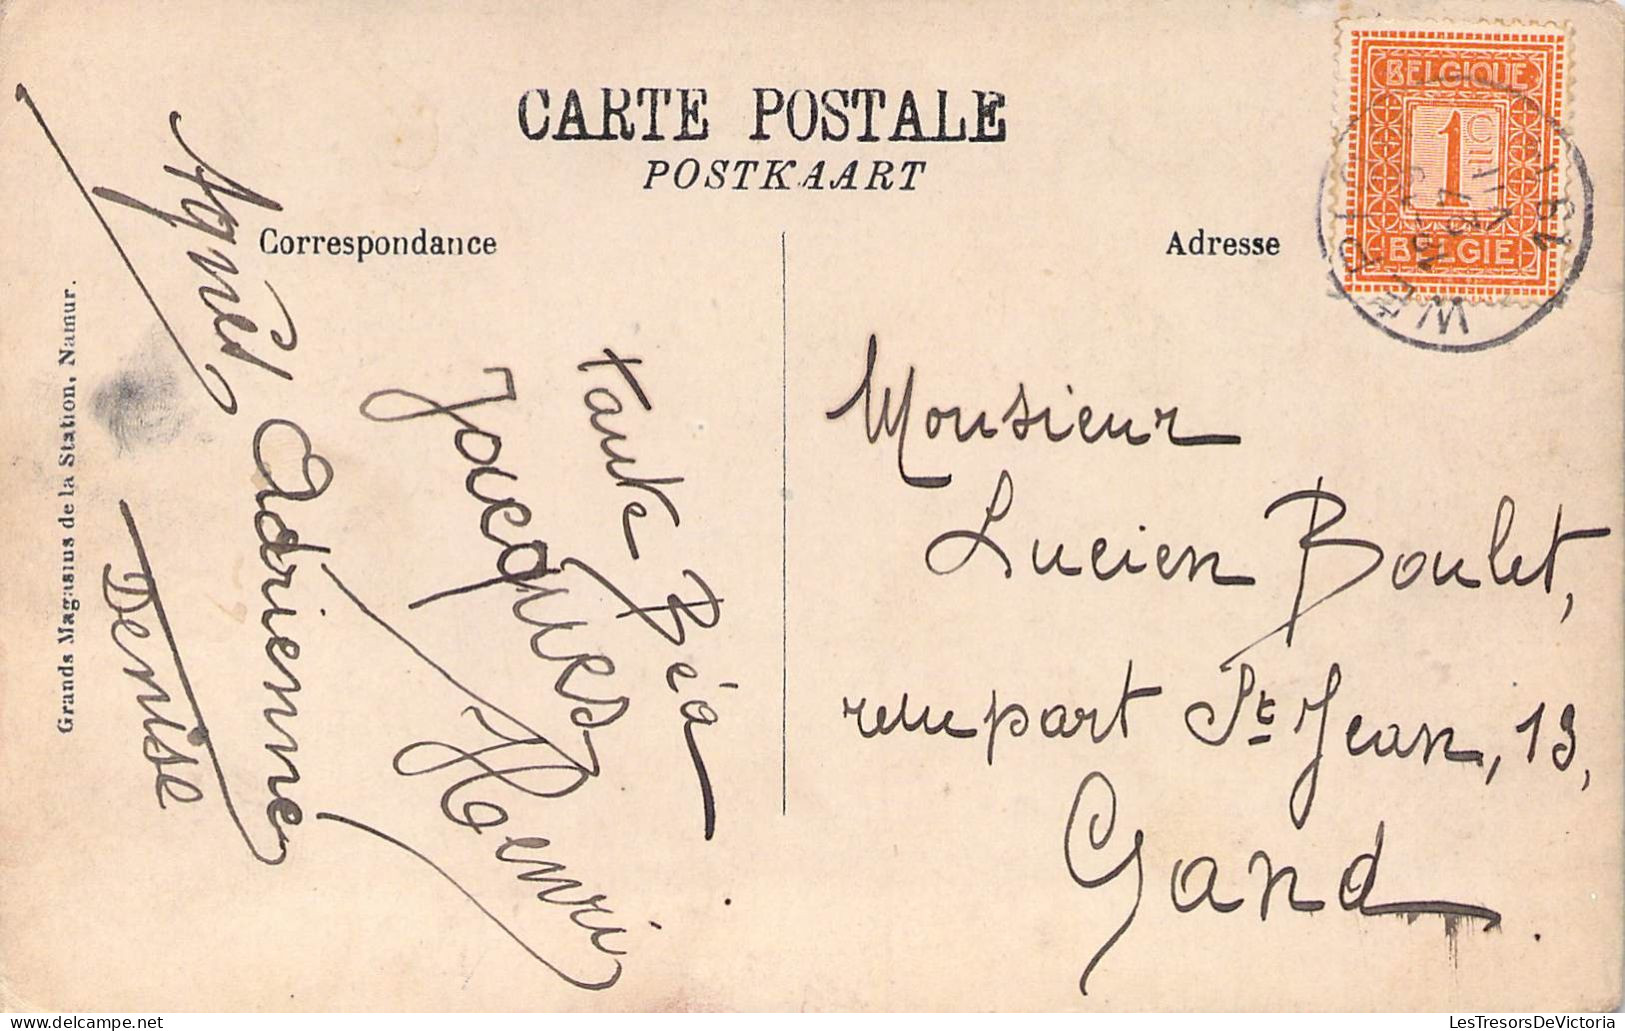 CARTE POSTALE
POSTKAART
Correspondance
Adresse
BELGIQUE
1 C
BELGIË
Grands Magasins de la Station, Namur.
Agnès
Adrienne
Denise
Tante Béa
Jacques
Henri
Monsieur
Lucien Boulet,
rempart St Jean, 13,
Gand.
LesTresorsDeVictoria